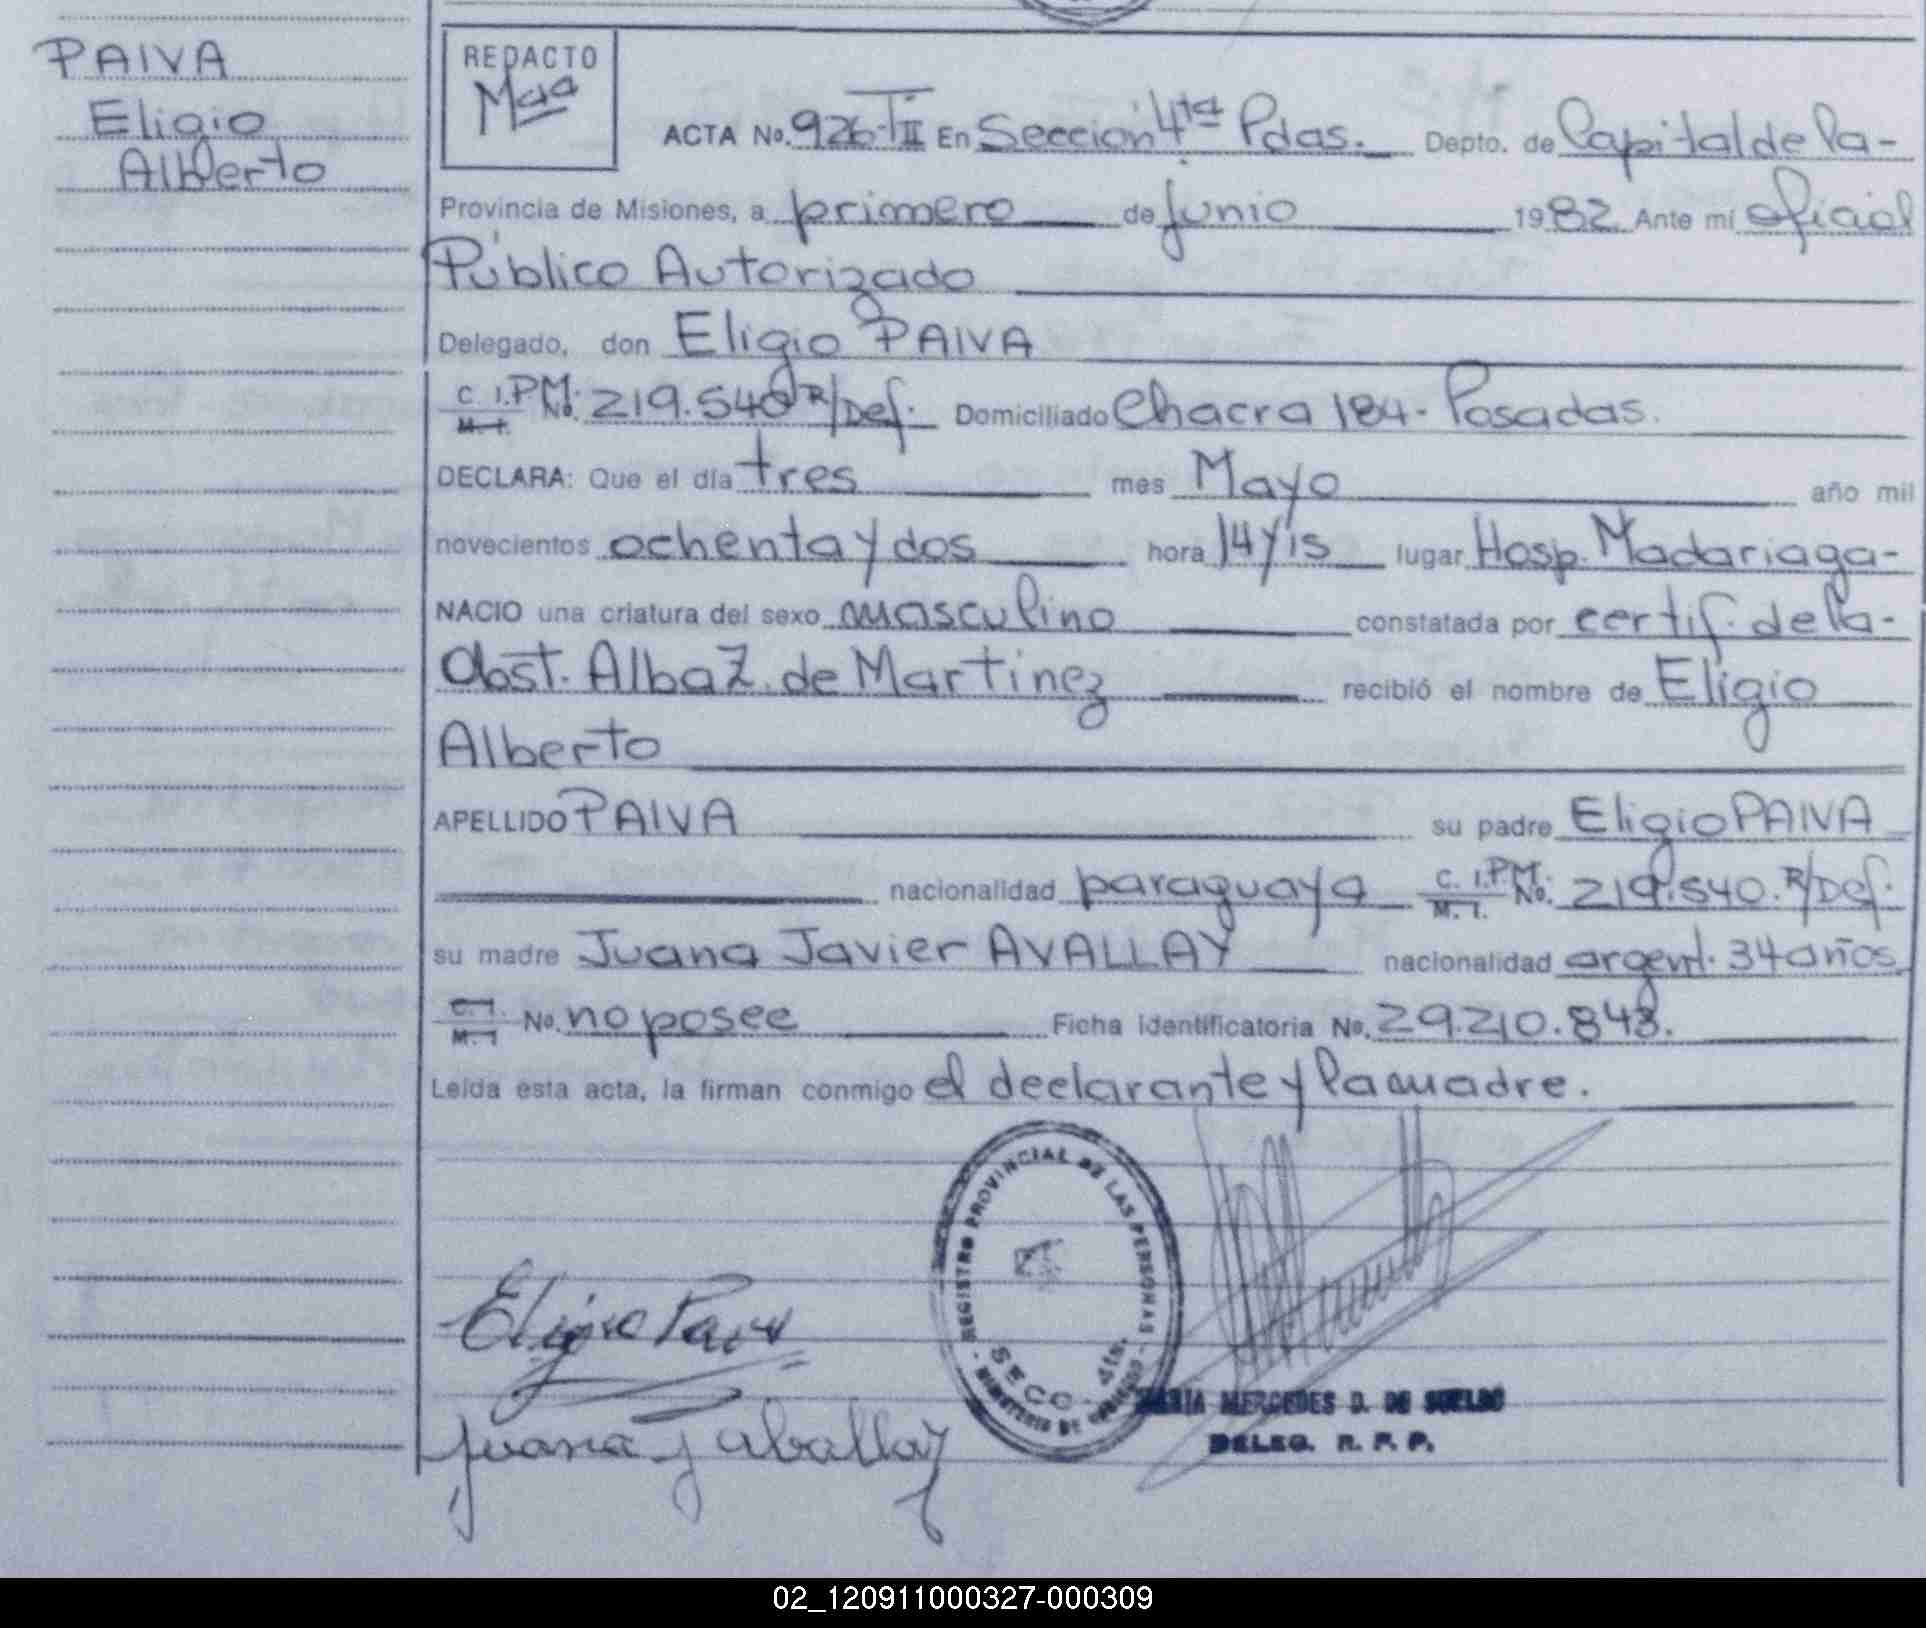 PAIVA
Eligio
Alberto
REDACTO
ACTA No. 926-TII En Sección 4ta Pdas. Depto. de Capital de la-
Provincia de Misiones, a primero de junio 1982 Ante mí oficial
Público Autorizado
Delegado, don Eligio PAIVA
C. I. PM. No. 219.540 R/Def. Domiciliado Chacra 184- Posadas.
M. I.
DECLARA: Que el día tres mes Mayo año mil
novecientos ochenta y dos hora 14 y 15 lugar Hosp. Madariaga-
NACIO una criatura del sexo masculino constatada por certif. de la-
Obst. Alba Z. de Martinez recibió el nombre de Eligio
Alberto
APELLIDO PAIVA su padre Eligio PAIVA
nacionalidad paraguaya C. I. PM. No. 219.540. R/Def.
M. I.
su madre Juana Javier AVALLAY nacionalidad argent. 34 años
C. I. No. no posee Ficha Identificatoria No. 29.210.848.
M. I
Leída esta acta, la firman conmigo el declarante y la madre.
REGISTRO PROVINCIAL DE LAS PERSONAS
SECC. 4ta.
MINISTERIO DE GOBIERNO
Eligio Paiva
Juana J aballay
MARIA MERCEDES D. DE SUELDO
DELEG. R. P. P.
02_120911000327-000309